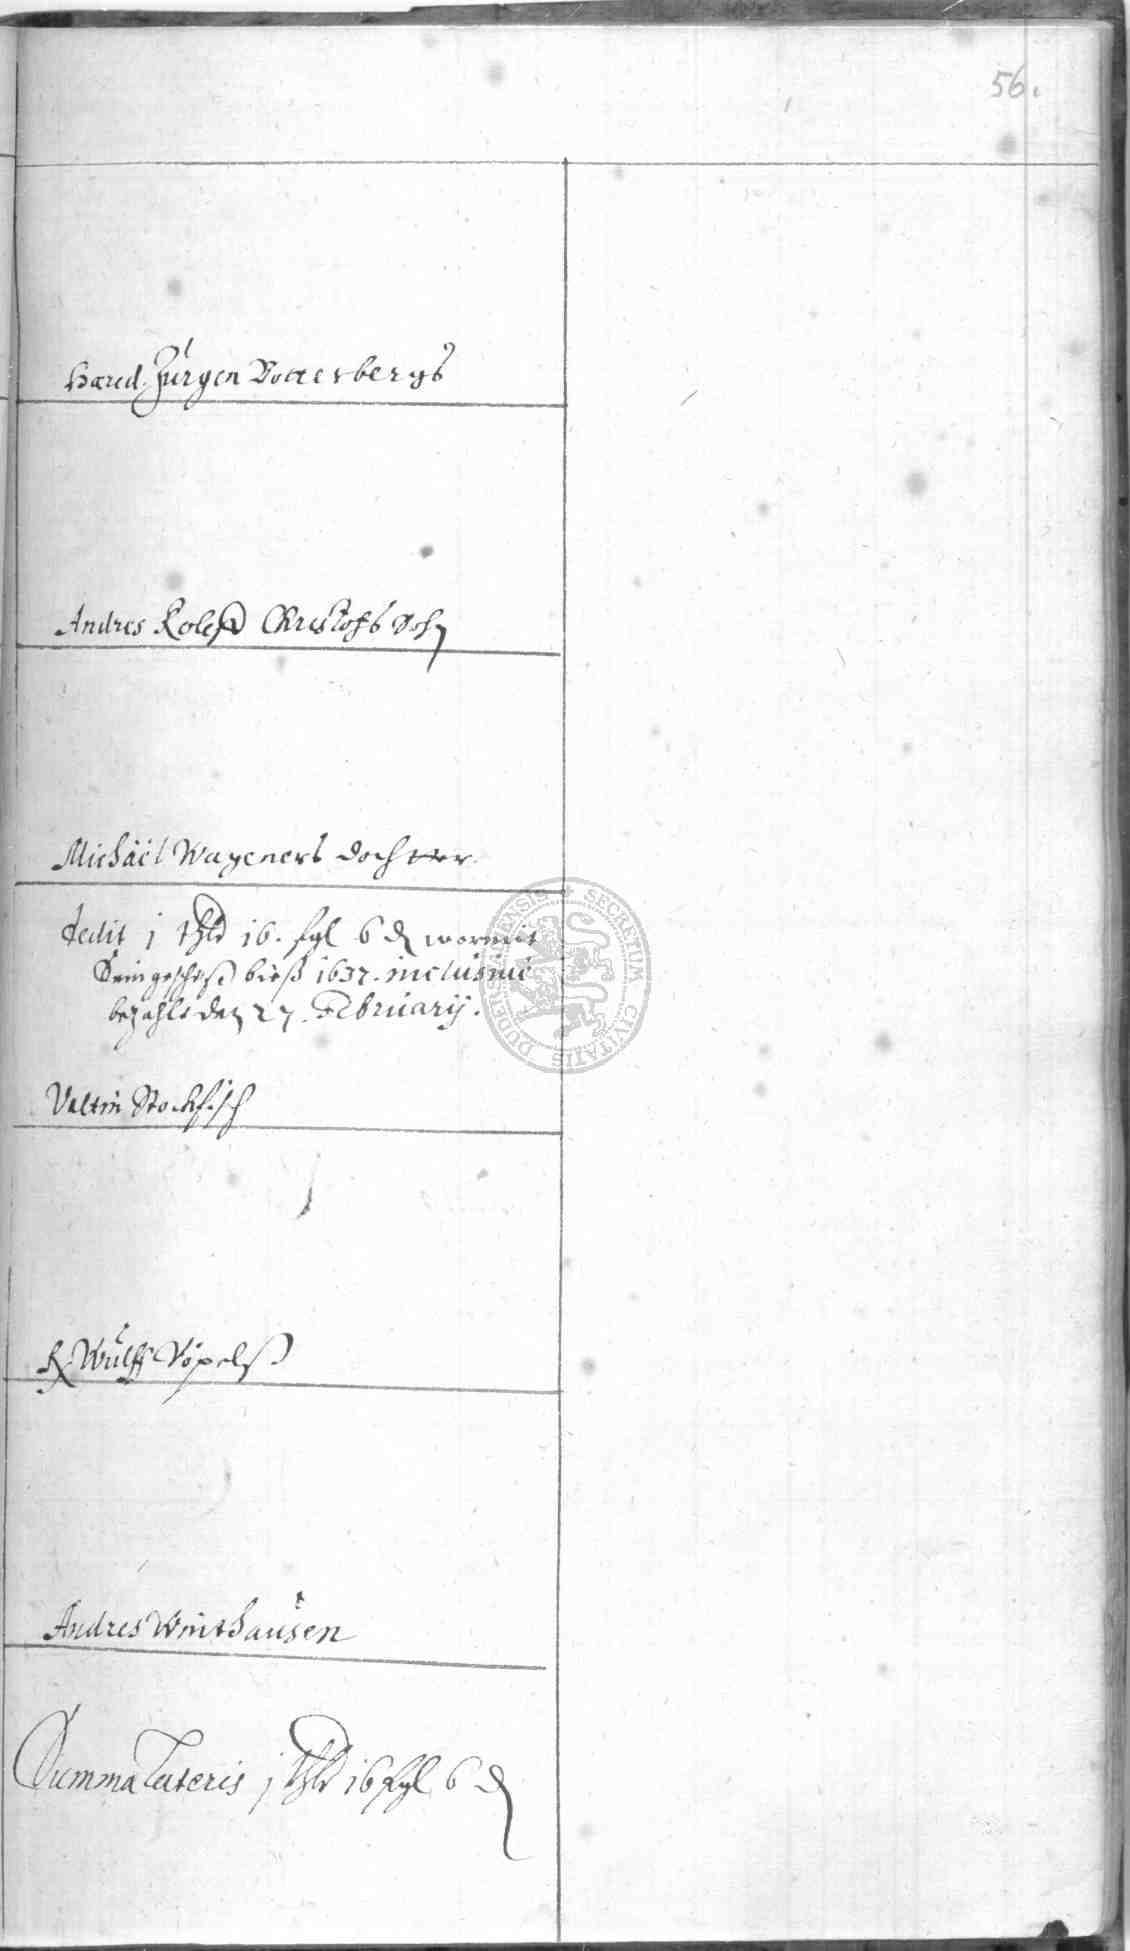 56.
Haered. Jürgen Bottersbergs
Andres Christofs Sohn
Michäel Wageners dochter
dedit j thlr 16. sgl 6 d wormit
Sein geschoß bieß 1637. inclusiue
bezahlt den 27. February.
Valtin Stockfisch
Wulff Vöpelß
Andres Winthausen
Summa Lateris j thlr 16 sgl 6 d
SECRETUM CIVITATIS DUDERSTADENSIS